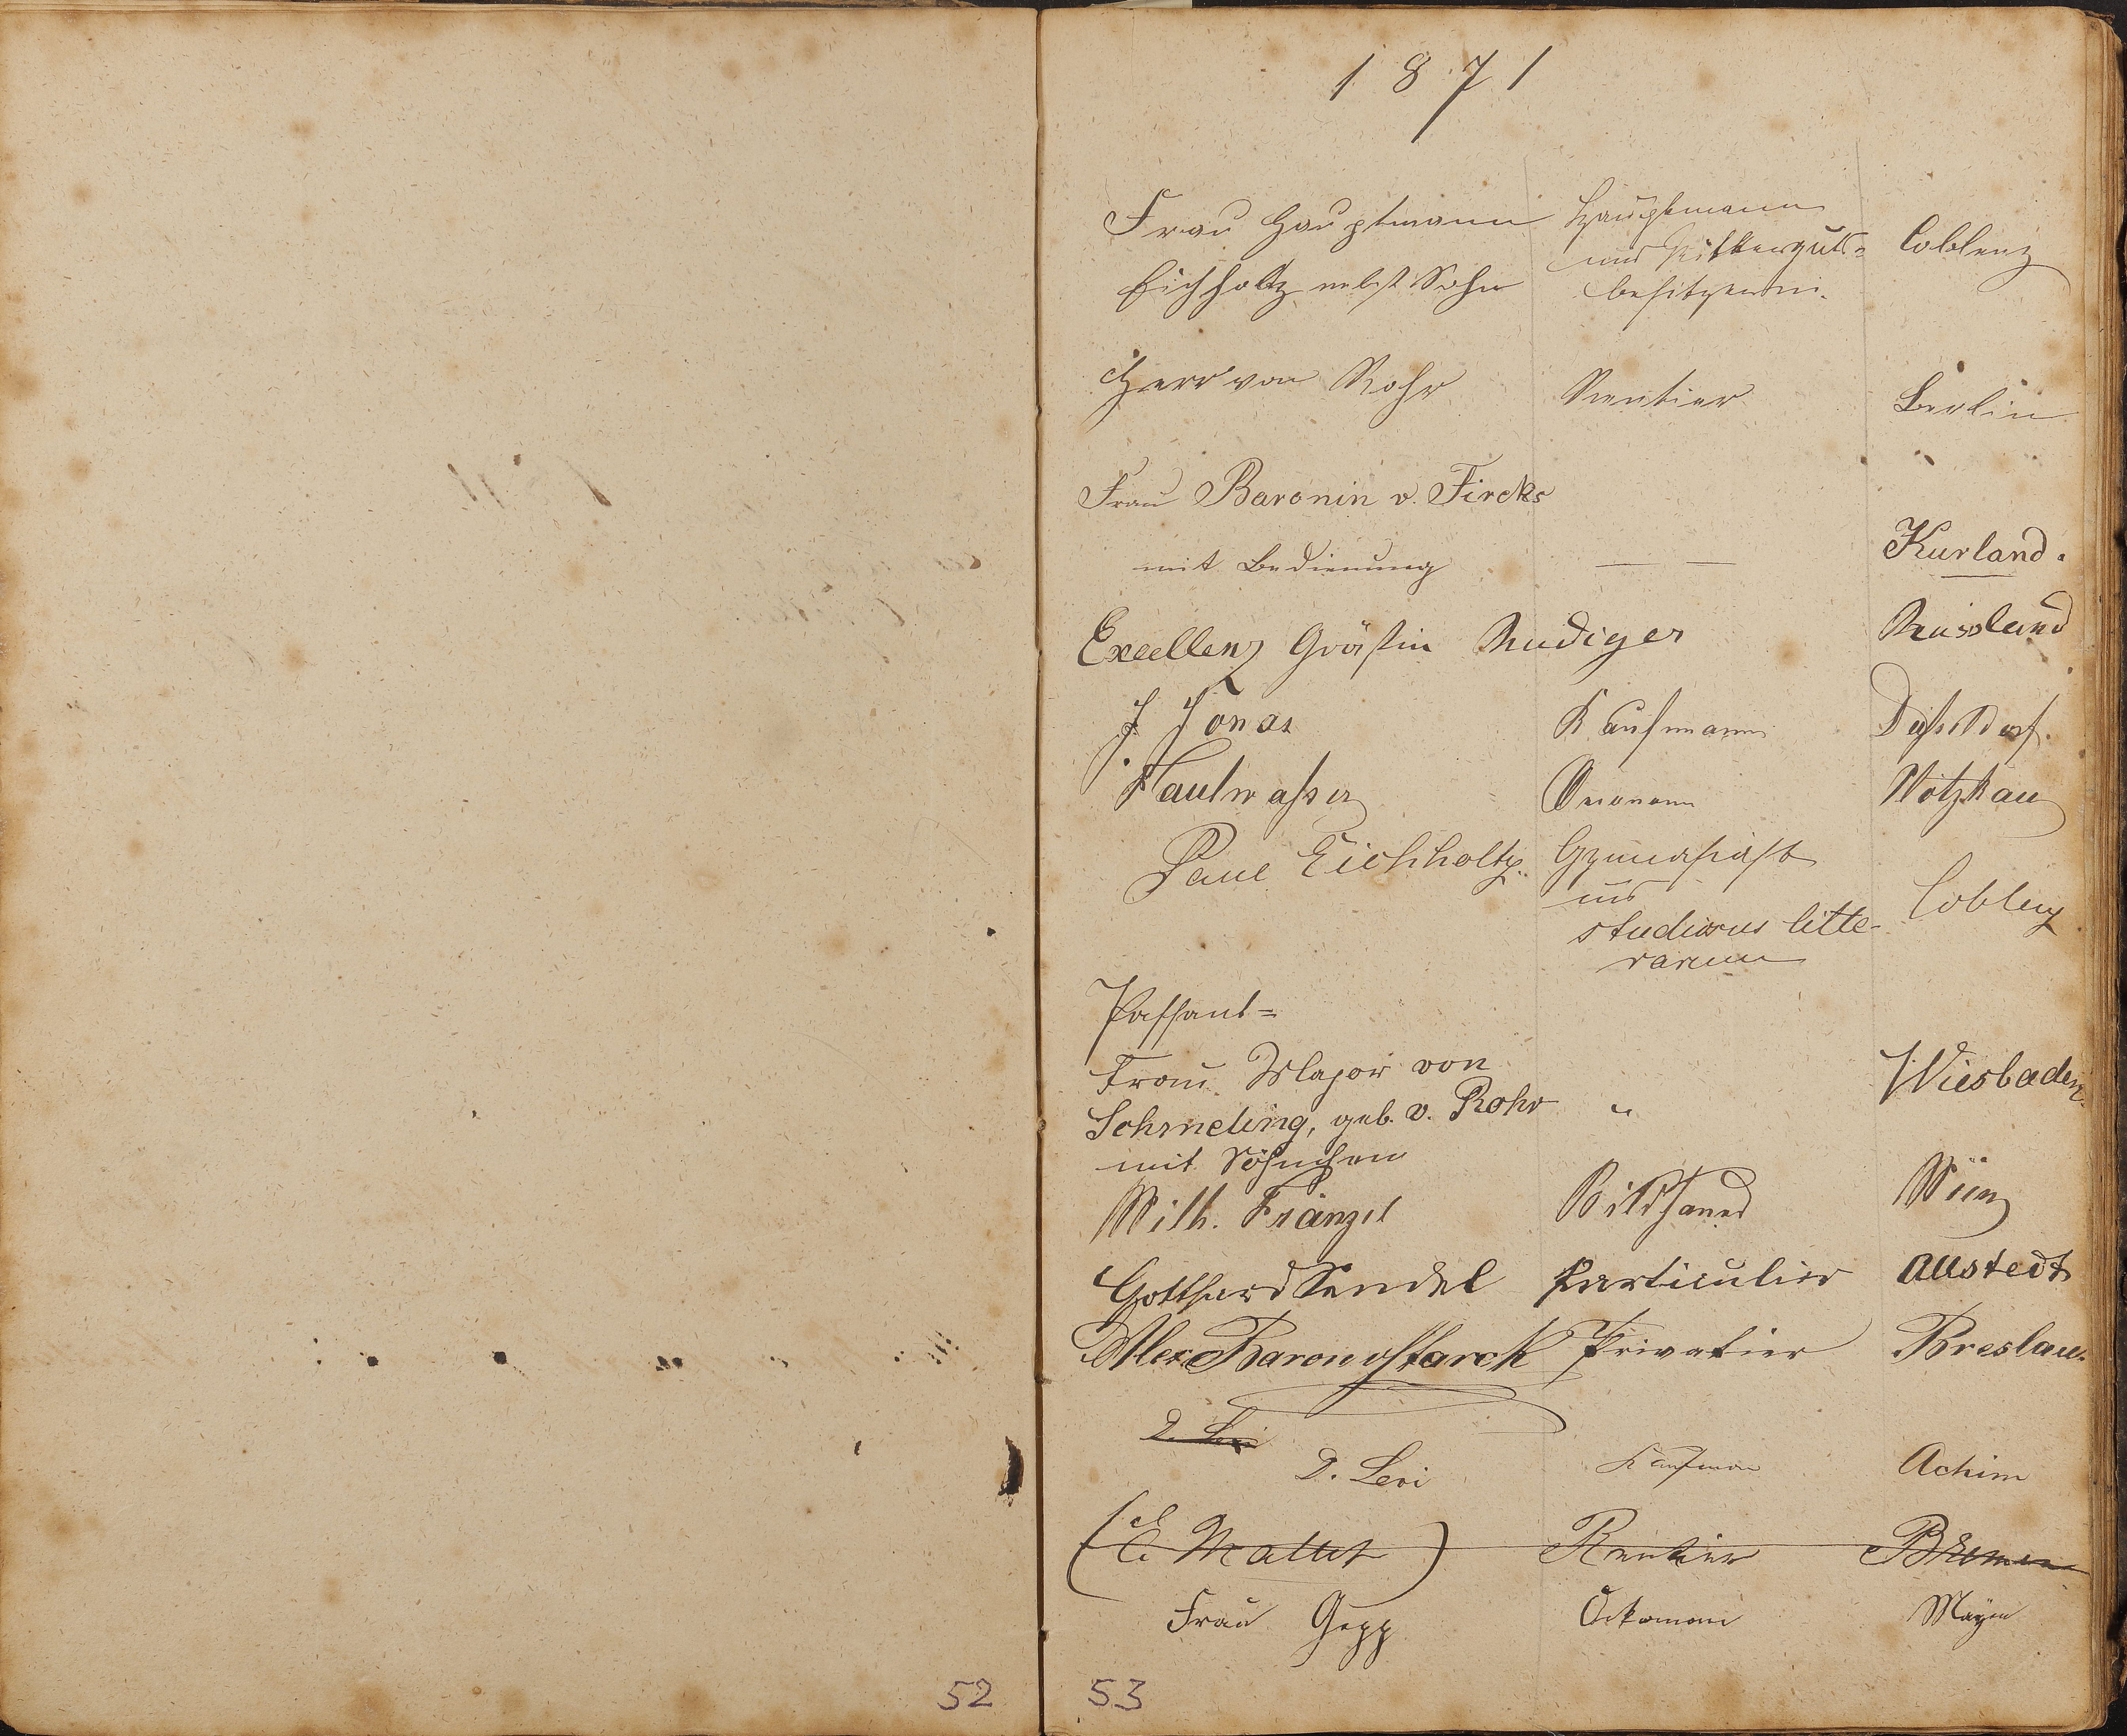 1871
Frau Hauptmann Hauptmann
und Ritterguts= Coblenz
Eichholtz nebst Sohn besitzerin.
Herr von Rohr Rentier Berlin
Frau Baronin v. Fircks
mit Bedienung — — Kurland.
Excellenz Gräfin Rudiger Russland
J Jonas Kaufmann
Faulwasser Oeconom Wötzkau
Paul Eichholtz. Gymnasiast
und Coblenz
studiosus litte-
rarum
Passant=
Frau Major von Wiesbaden.
Schmeling, geb. v. Rohr "
mit Söhnchen
Wilh. Fränzel Bildhauer Wien
Gotthard Sendel Particulier Allstedt
Alex Baron v Starck Privatier Breslau.
D. Levi
D. Levi Kaufman Achim
(C. Rentier Bremen
Frau Gepp Oekonom Mayen
52 53